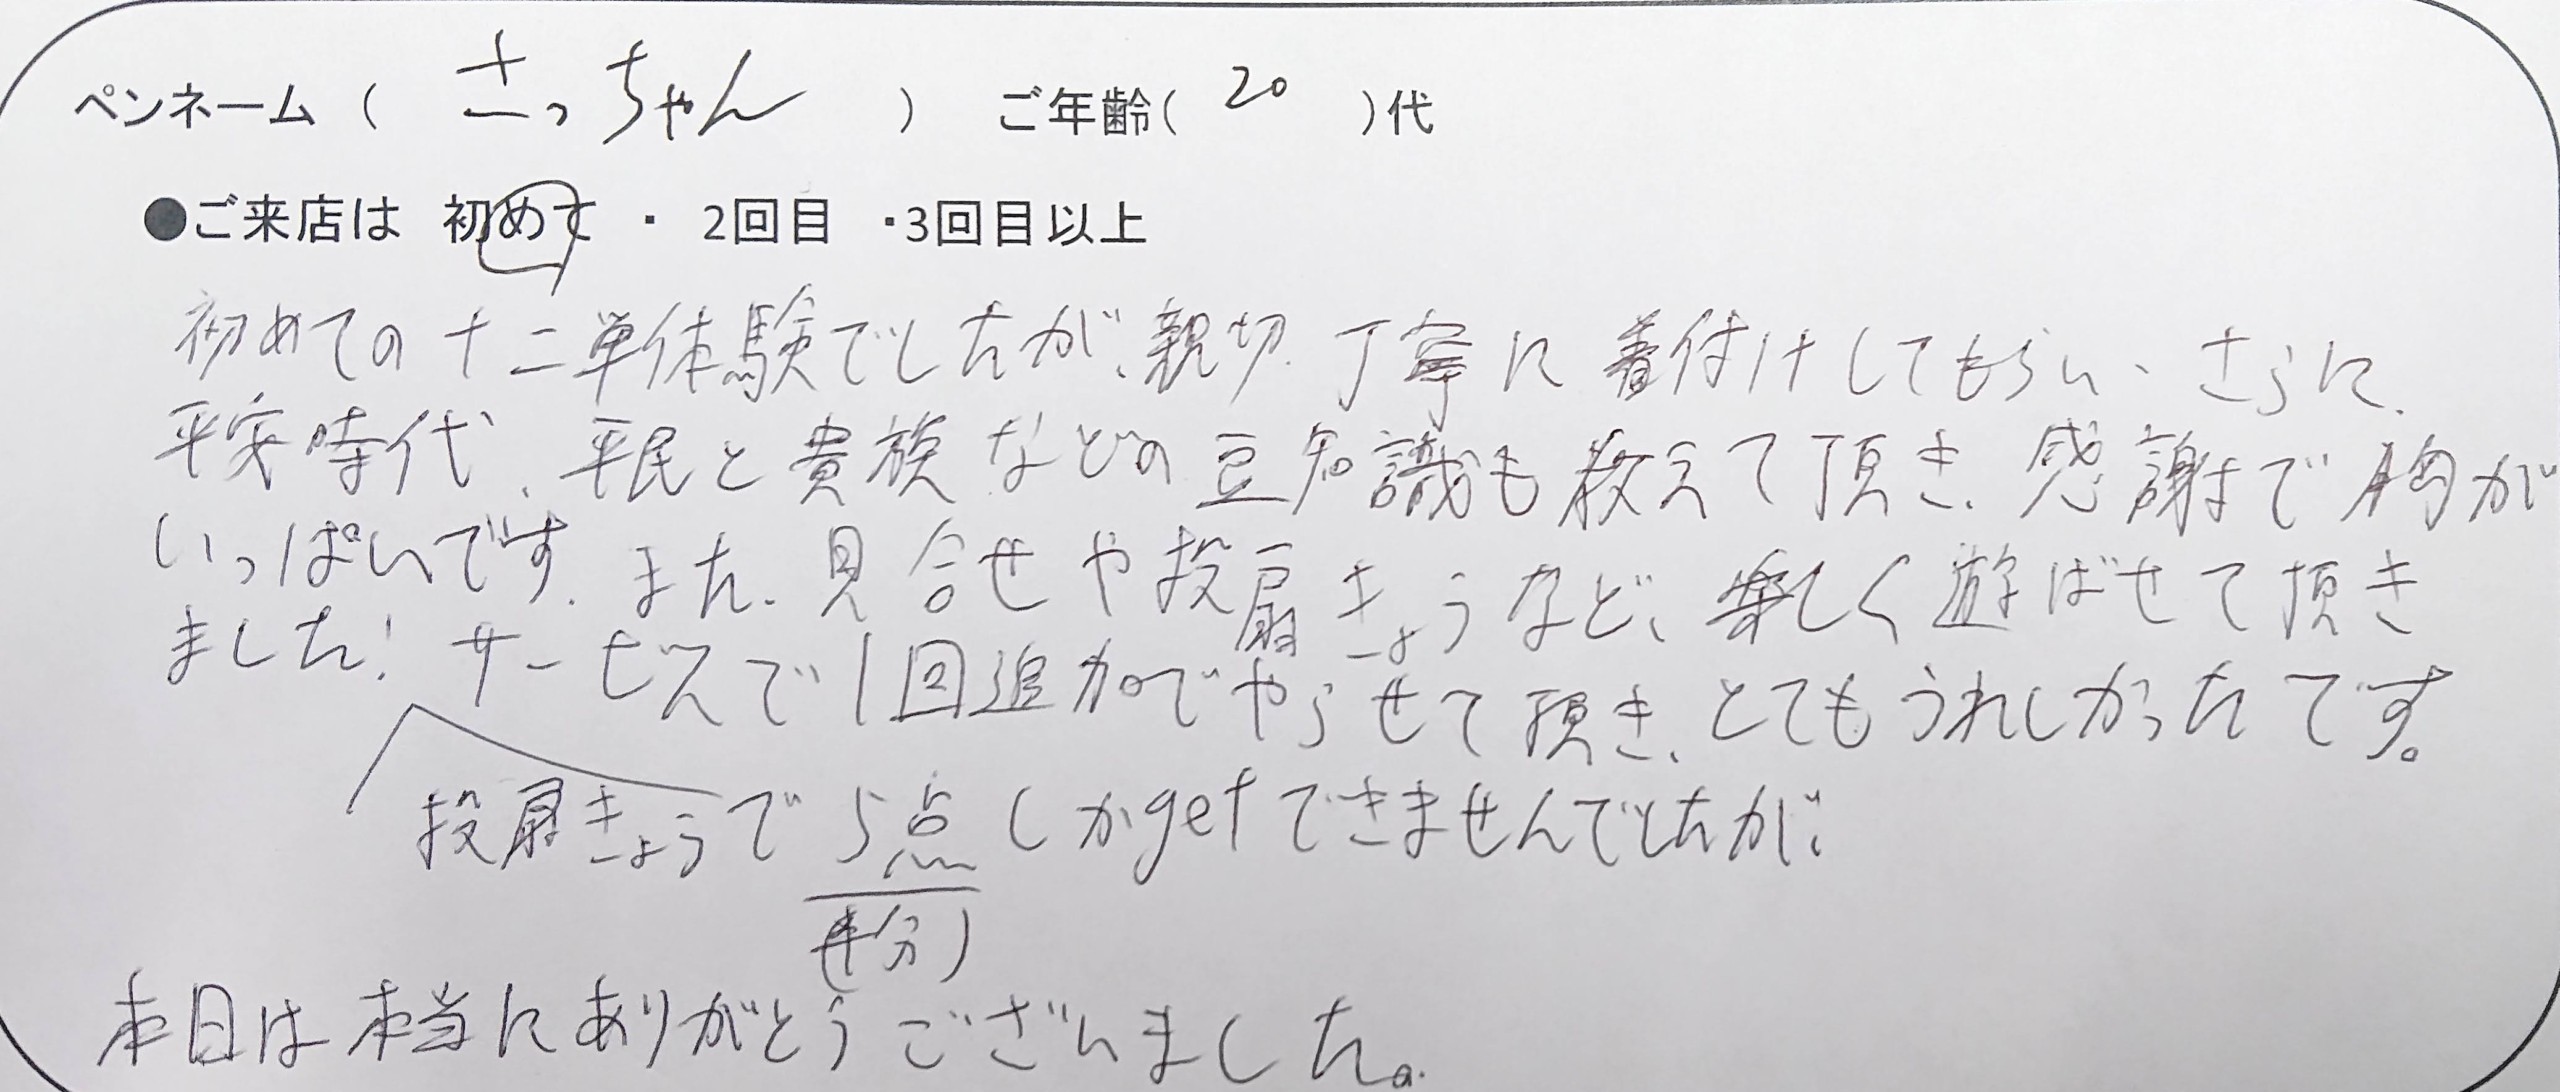 ペンネーム ( さっちゃん ) ご年齢( 20 )代
●ご来店は 初めて ・ 2回目 ・3回目以上
初めての十二単体験でしたが、親切、丁寧に着付けしてもらい、さらに、
平安時代、平民と貴族などの豆知識も教えて頂き、感謝で胸が
いっぱいです。また、貝合せや投扇きょうなど、楽しく遊ばせて頂き
ました! サービスで1回追加でやらせて頂き、とてもうれしかったです。
投扇きょうで5点しかgetできませんでしたが、
本日は本当にありがとうございました。